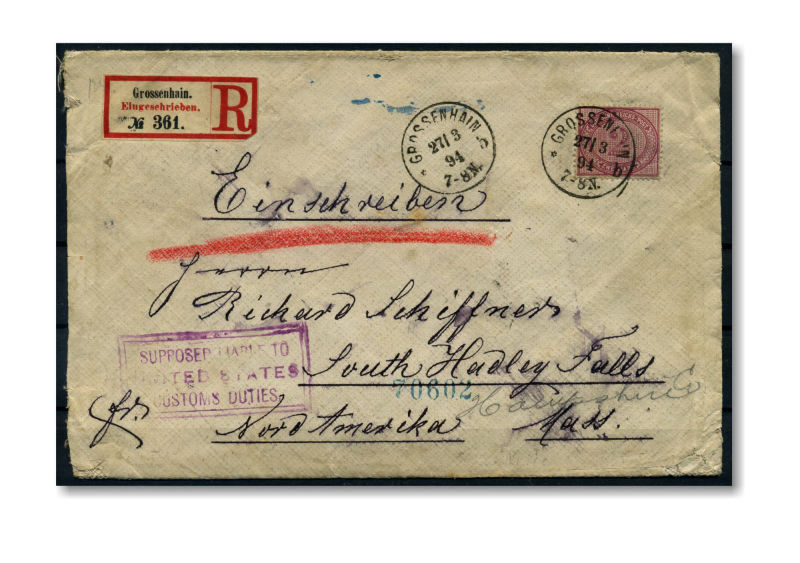 Grossenhain.
Eingeschrieben.
№ 361.
R
GROSSENHAIN
27/3
94
7-8N.
GROSSENHAIN
27/3
94
7-8N.
b
Einschreiben
Herrn
Richard Schiffner
South Hadley Falls
SUPPOSED LIABLE TO
UNITED STATES
CUSTOMS DUTIES
70602
Hampshire Co
fr.
Nord Amerika Mass.